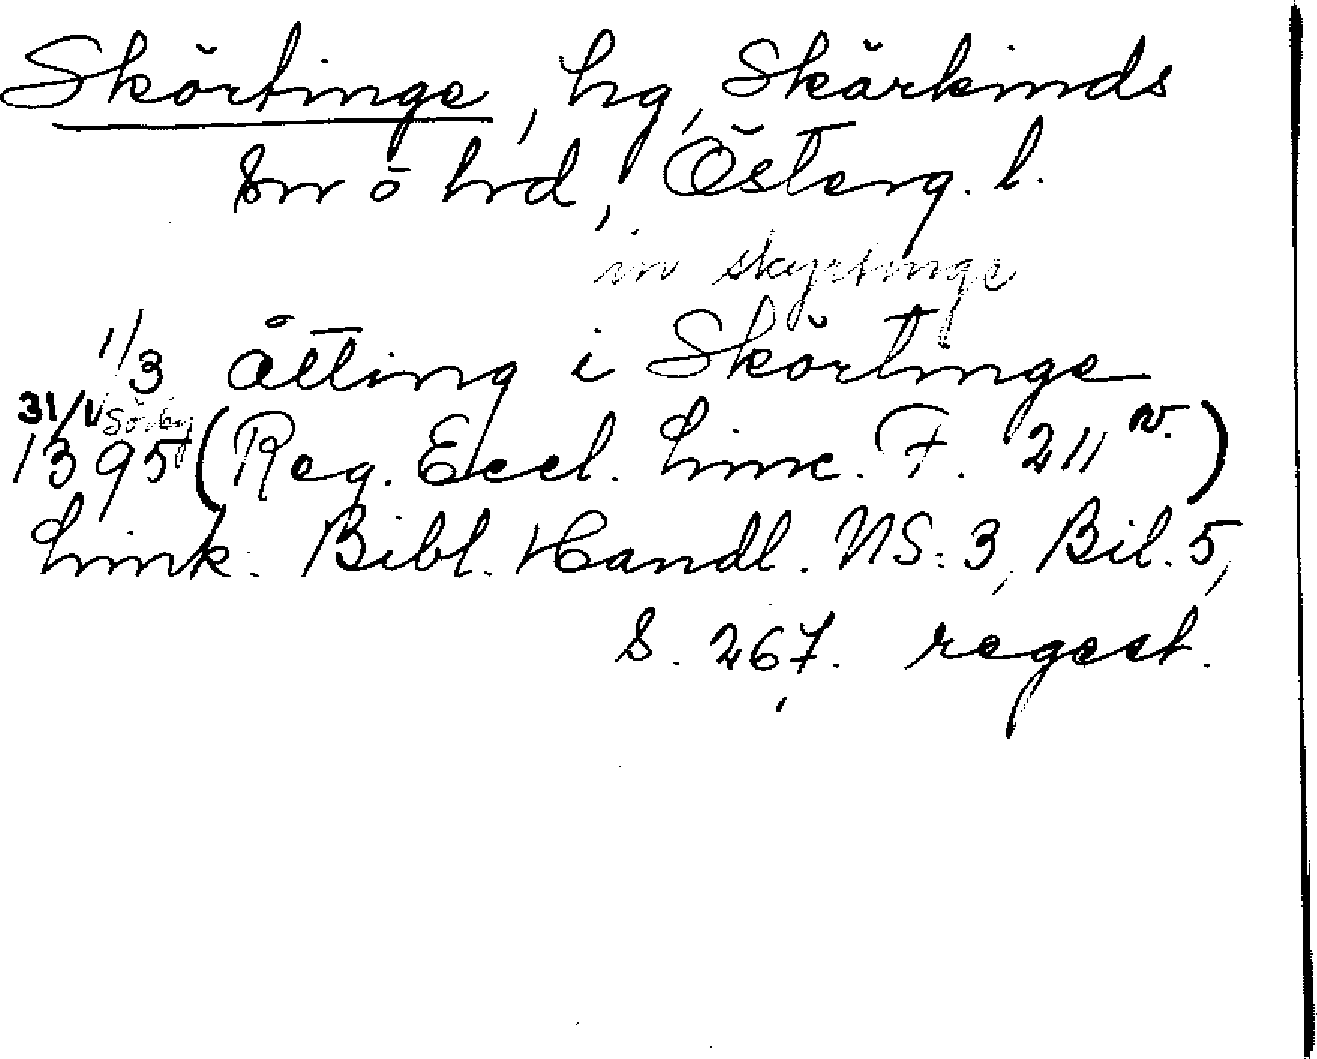 Skörtinge, hg, Skärkinds
sn o hrd, Österg. l.
in skyrtinge
1/3 åtting i Skörtinge
31/1 Sörby
1395 (Reg. Eccl. Linc. F. 211 v.)
Link. Bibl. Handl. NS. 3, Bil. 5,
S. 267. regest.